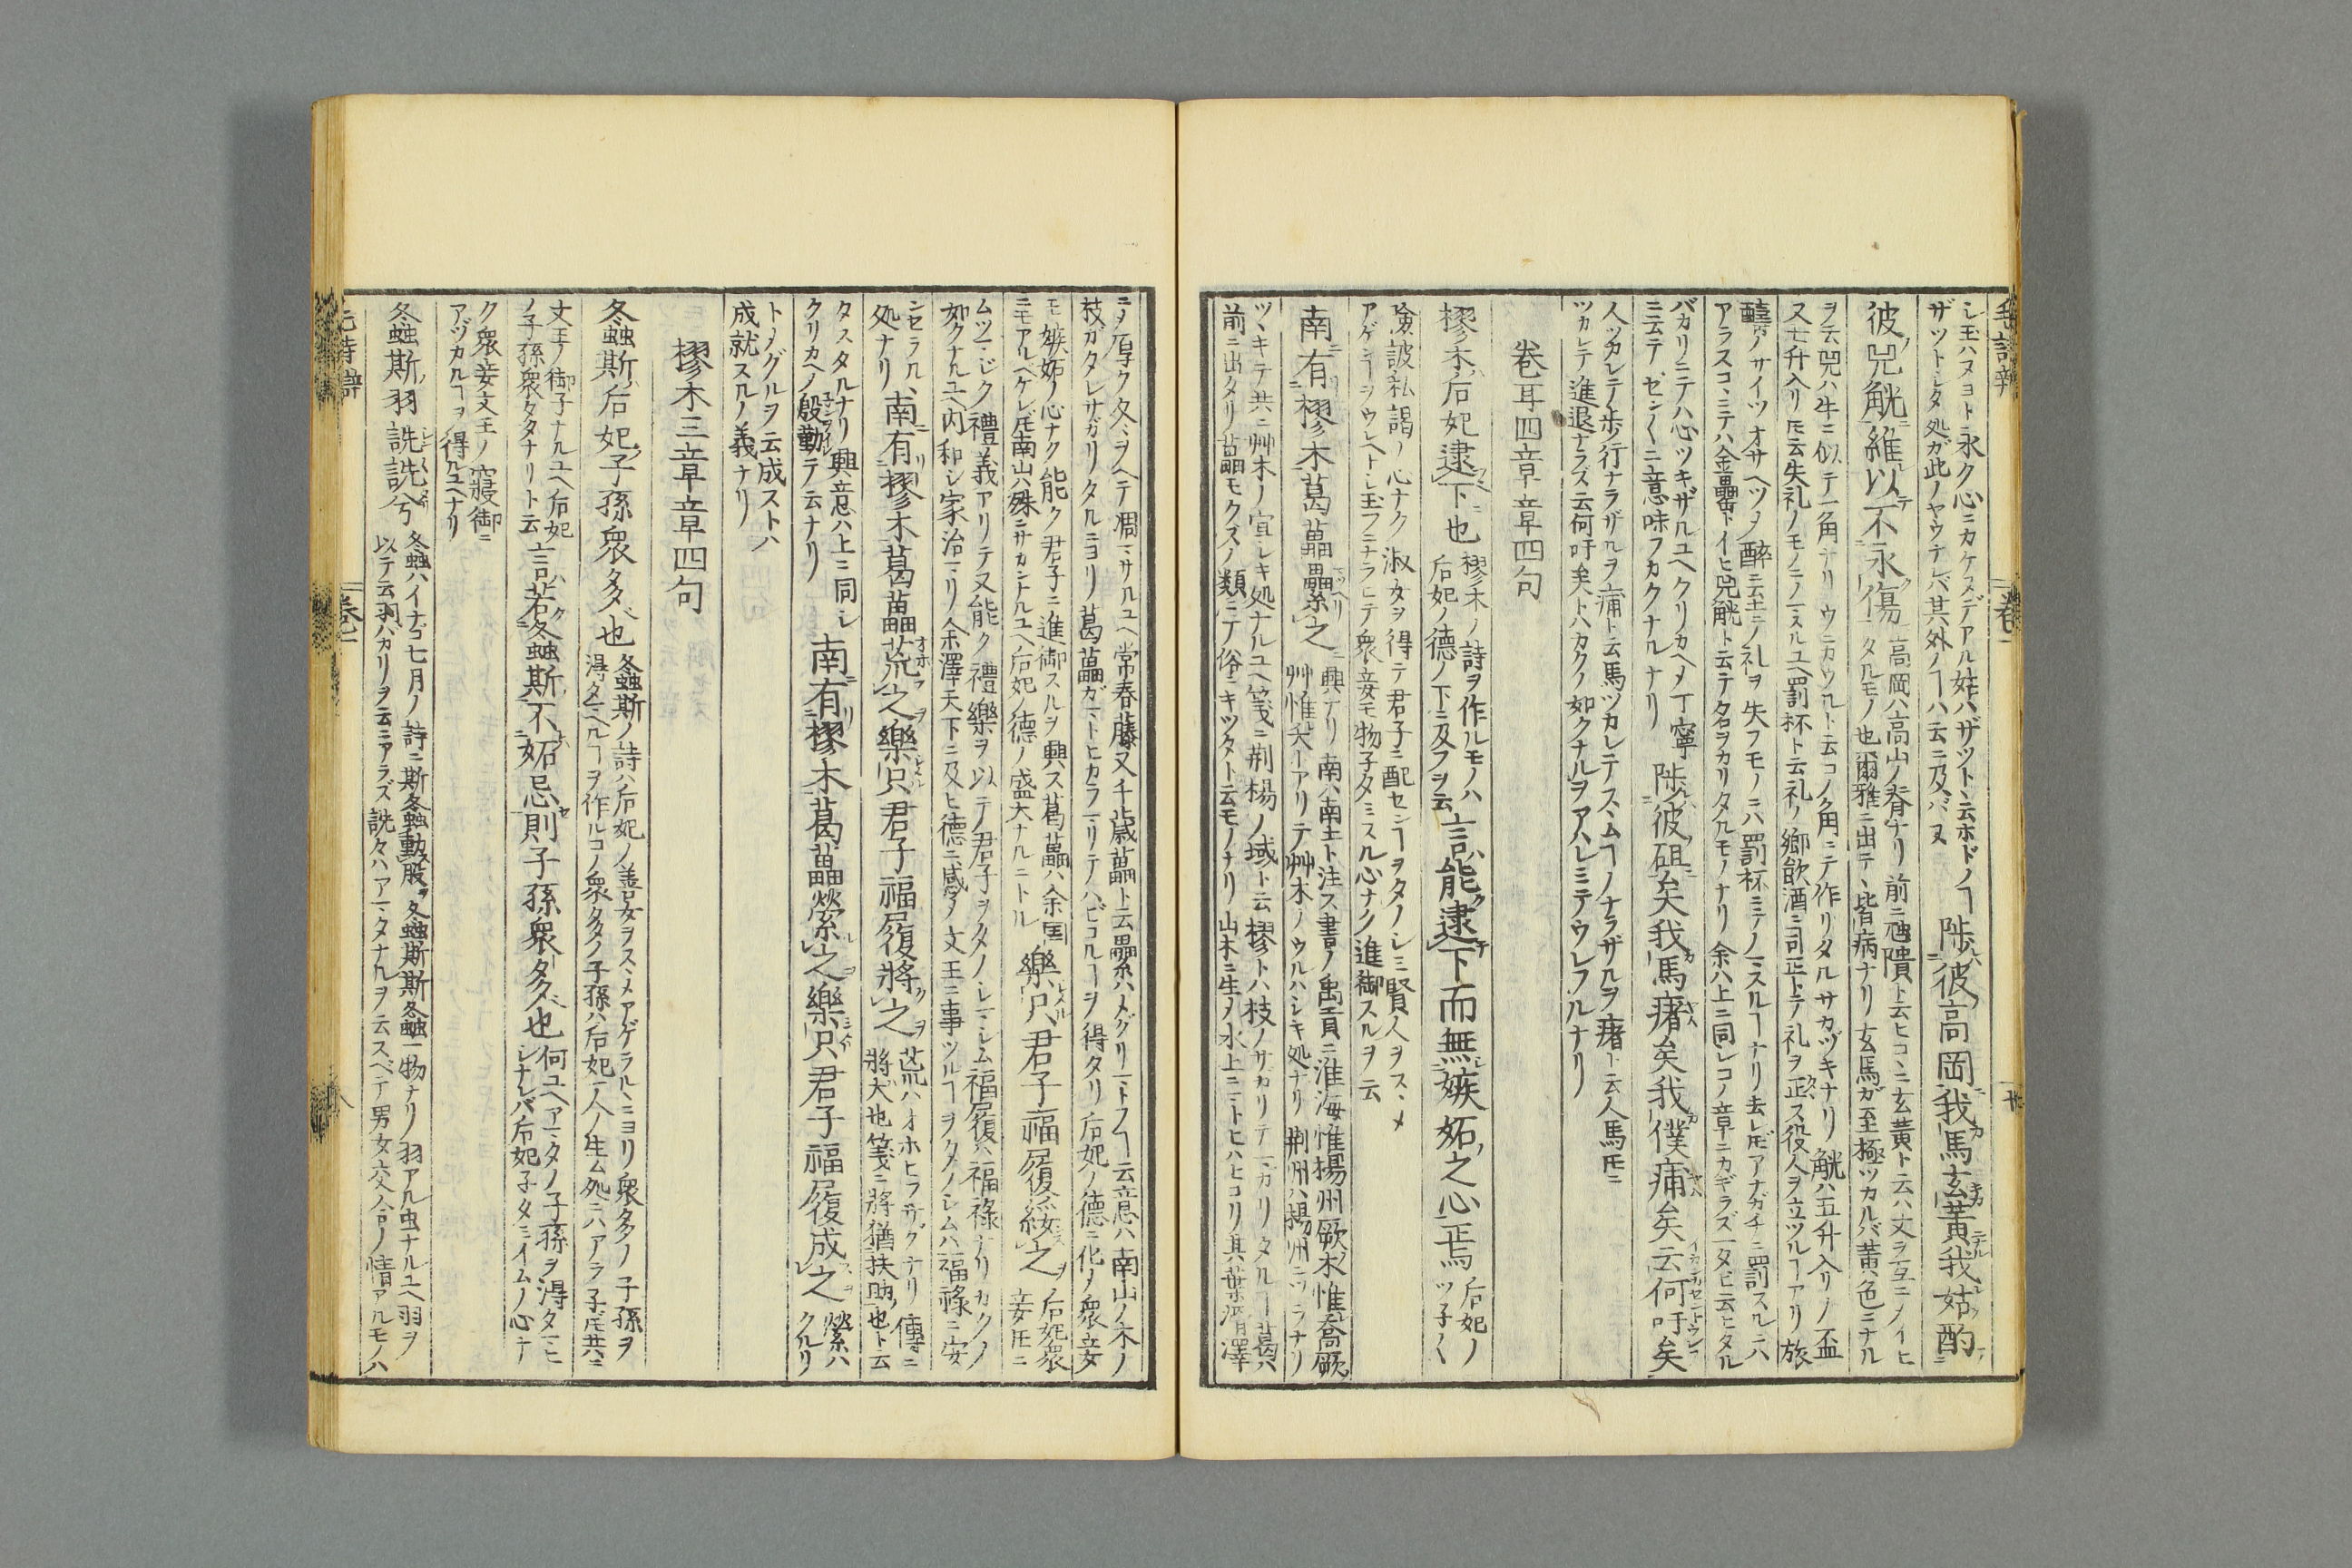 シ玉ハヌヨト永ク心ニカケヌデアル姑ハザツト云ホドノヿ
ザツトシタ処ガ此ノヤウナレバ其外ノヿハ云ニ及バヌ
陟彼高岡我馬玄黄我姑酌
彼兕觥維以不永傷
高岡ハ高山ノ脊ナリ前ニ虺隤ト云ヒコヽニ玄黄ト云ハ文ヲ互ニノイヒ
タルモノ也爾雅ニ出テ皆病ナリ玄馬ガ至極ツカルバ黄色ニナル
ヲ云兕ハ牛ニ似テ一角ナリウニカウルト云コノ角ニテ作リタルサカヅキナリ觥ハ五升入リノ盃
又七升入リ𪜈云失礼ノモノニノマスルユヘ罰杯ト云礼ノ郷飲酒ニ司正トテ礼ヲ正ス役人ヲ立ツルヿアリ旅
醻ノサイツオサヘツノ醉ニ云ニノ礼ヲ失フモノニハ罰杯ニテノマスルヿナリ去レ𪜈アナガチニ罰スルニハ
アラスコヽニテハ金罍トイヒ兕觥ト云テ名ヲカリタルモノナリ余ハ上ニ同レコノ章ニカギラズ一タビ云ヒタル
バカリニテハ心ツキザルユヘクリカヘノ丁寧
ニ云テゼン〱ニ意味フカクナルナリ
陟彼砠矣我馬瘏矣我僕痡矣云何吁矣
人ツカレテ歩行ナラザルヲ痡ト云馬ツカレテスヽムヿノナラザルヲ瘏ト云人馬𪜈ニ
ツカレテ進退ナラズ云何吁矣トハカクノ如クナルヲアハレミテウレフルナリ
卷耳四章章四句
樛木后妃逮下也
樛木ノ詩ヲ作ルモノハ
后妃ノ德ノ下ニ及フヲ云
言能逮下而無嫉妬之心焉
后妃ノ
ツ子〱
険詖私謁ノ心ナク淑女ヲ得テ君子ニ配センヿヲタノレミ賢人ヲスヽメ
アゲンヿヲウレヘト玉フニナラヒテ衆妾モ物子タミスル心ナク進御スルヲ云
南有樛木葛藟纍之
興ナリ南ハ南土ト注ス書ノ禹貢ニ淮海惟揚州厥木惟喬厥
艸惟夭ーアリテ艸木ノウルハシキ処ナリ荆州ハ揚州ニツラナリ
ツヽキテ共ニ艸木ノ宜レキ処ナルユヘ箋ニ荆楊ノ域ト云樛トハ枝ノサカリテマガリタルヿ葛ハ
前ニ出タリ藟モクズノ類ニテ俗ニキツタト云モノナリ山木ニ生ノ木上ニマトヒハヒコリ其葉滑澤
ニノ厚ク冬ヲヘテ凋マサルユヘ常春藤又千歳藟ト云纍ハメグリマトフヿ云意ハ南山ノ木ノ
枝ガタレサガリタルニヨリ葛藟ガマトヒカラマリテハビコルヿヲ得タリ后妃ノ德ニ化ノ衆妾
モ嫉妬ノ心ナク能ク君子ニ進御スルヲ興ス葛藟ハ余国
ニモアルヘケレ𪜈南山ハ殊ニサカンナルユヘ后妃ノ德ノ盛大ナルニトル
樂只君子福履綏之
后妃衆
妾𪜈ニ
ムツマジク禮義アリテ又能ク禮樂ヲ以テ君子ヲタノレマシム福履ハ福祿ナリカクノ
如クナルユヘ内和シ家治マリ余澤天下ニ及ヒ德ニ感ノ文王ニ事ツルヿヲタノレムハ福祿ニ安
ンセラルヽ
処ナリ
南有樛木葛藟荒之樂只君子福履將之
荒ハオホヒフサグナリ傳ニ
將大也箋ニ將猶扶助也ト云
タスタルナリ興意ハ上ニ同シ
クリカヘノ殷勤テ云ナリ
南有樛木葛藟縈之樂只君子福履成之
縈ハ
クルリ
トノグルヲ云成ストハ
成就スルノ義ナリ
樛木三章章四句
冬蟲斯后妃子孫衆多也
冬蟲斯ノ詩ハ后妃ノ善女ヲスヽメアゲラルヽニヨリ衆多ノ子孫ヲ
得タマヘルヿヲ作ルコノ衆多ノ子孫ハ后妃一人ノ生ム処ニハアラ子𪜈共ニ
文王ノ御子ナルユヘ后妃
ノ子孫衆タタナリト云
言若冬蟲斯不妬忌則子孫衆多也
何ユヘアマタノ子孫ヲ得タマヒ
シナレバ后妃子タミイムノ心ナ
ク衆妾文王ノ寢御ニ
アヅカルヿヲ得ルユヘナリ
冬蟲斯羽詵詵兮
冬蟲ハイナゴ七月ノ詩ニ斯冬蟲動股ヲ冬蟲斯斯冬蟲一物ナリ羽アル虫ナルユヘ羽ヲ
以テ云羽ハカリヲ云ニアラズ詵々ハアマタナルヲ云スベテ男女交合ノ情アルモノハ